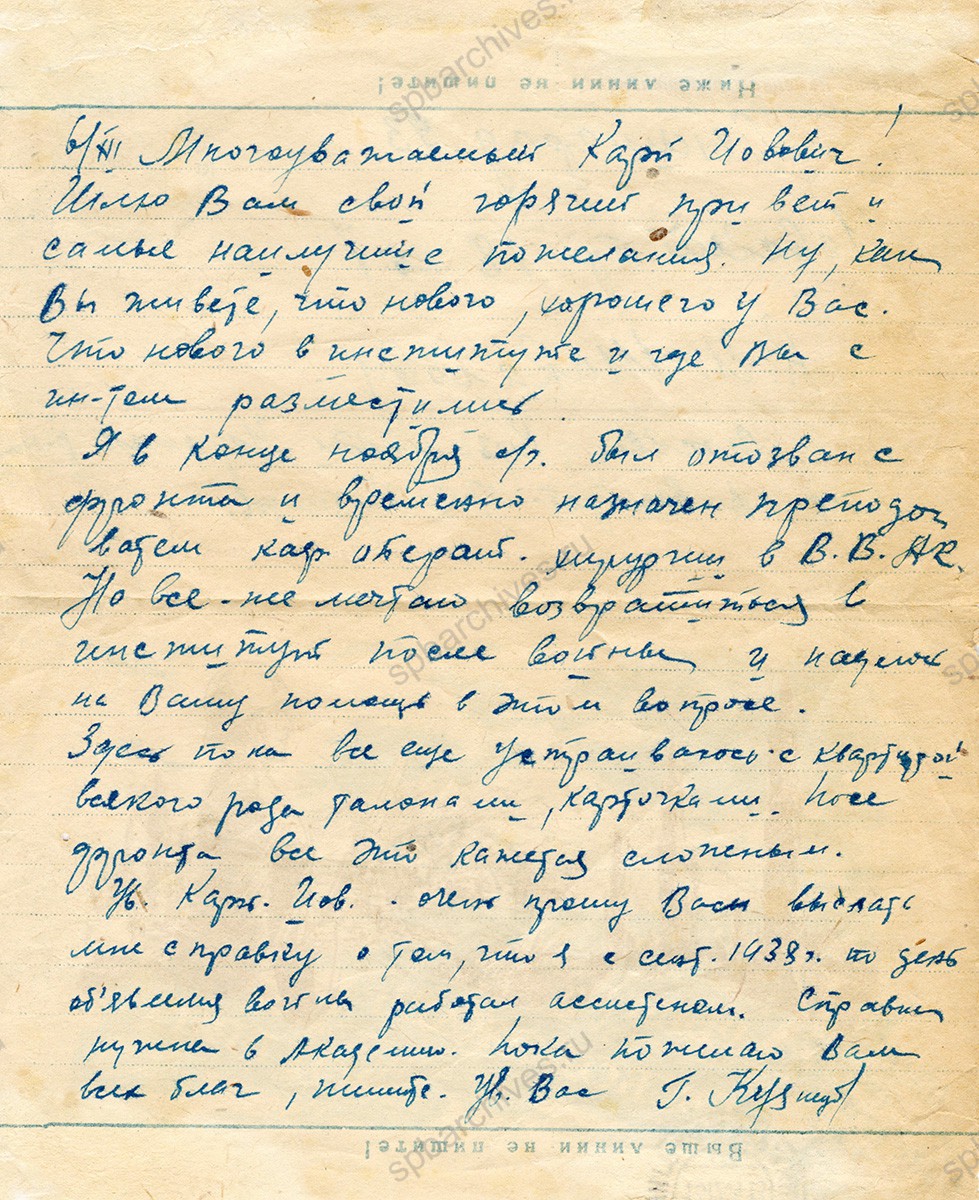 Ниже линии не пишите!
6/XII Многоуважаемый Карп Иовович!
Шлю Вам свой горячий привет и
самые наилучшие пожелания. Ну, как
Вы живете, что нового, хорошего у Вас.
Что нового в институте и где Вы с
ин-том разместились.
Я в конце ноября с/г. был отозван с
фронта и временно назначен препода
ватем каф операт. хирургии в В.В.Ак.
Но все-же мечтаю возвратиться в
институт после войны и надеюсь
на Вашу помощь в этом вопросе.
Здесь пока все еще устраиваюсь с квартирой
всякого рода талонами, карточками. После
фронта все это кажется сложным.
Ув. Карп. Иов. - очень прошу Вас выслать
мне справку о том, что я с сент. 1938г. по день
об'явления войны работал ассистеном. Справка
нужна в Академию. Пока пожелаю Вам
всех благ, пишите. Ув. Вас Г.
Выше линии не пишите!
spbarchives.ru